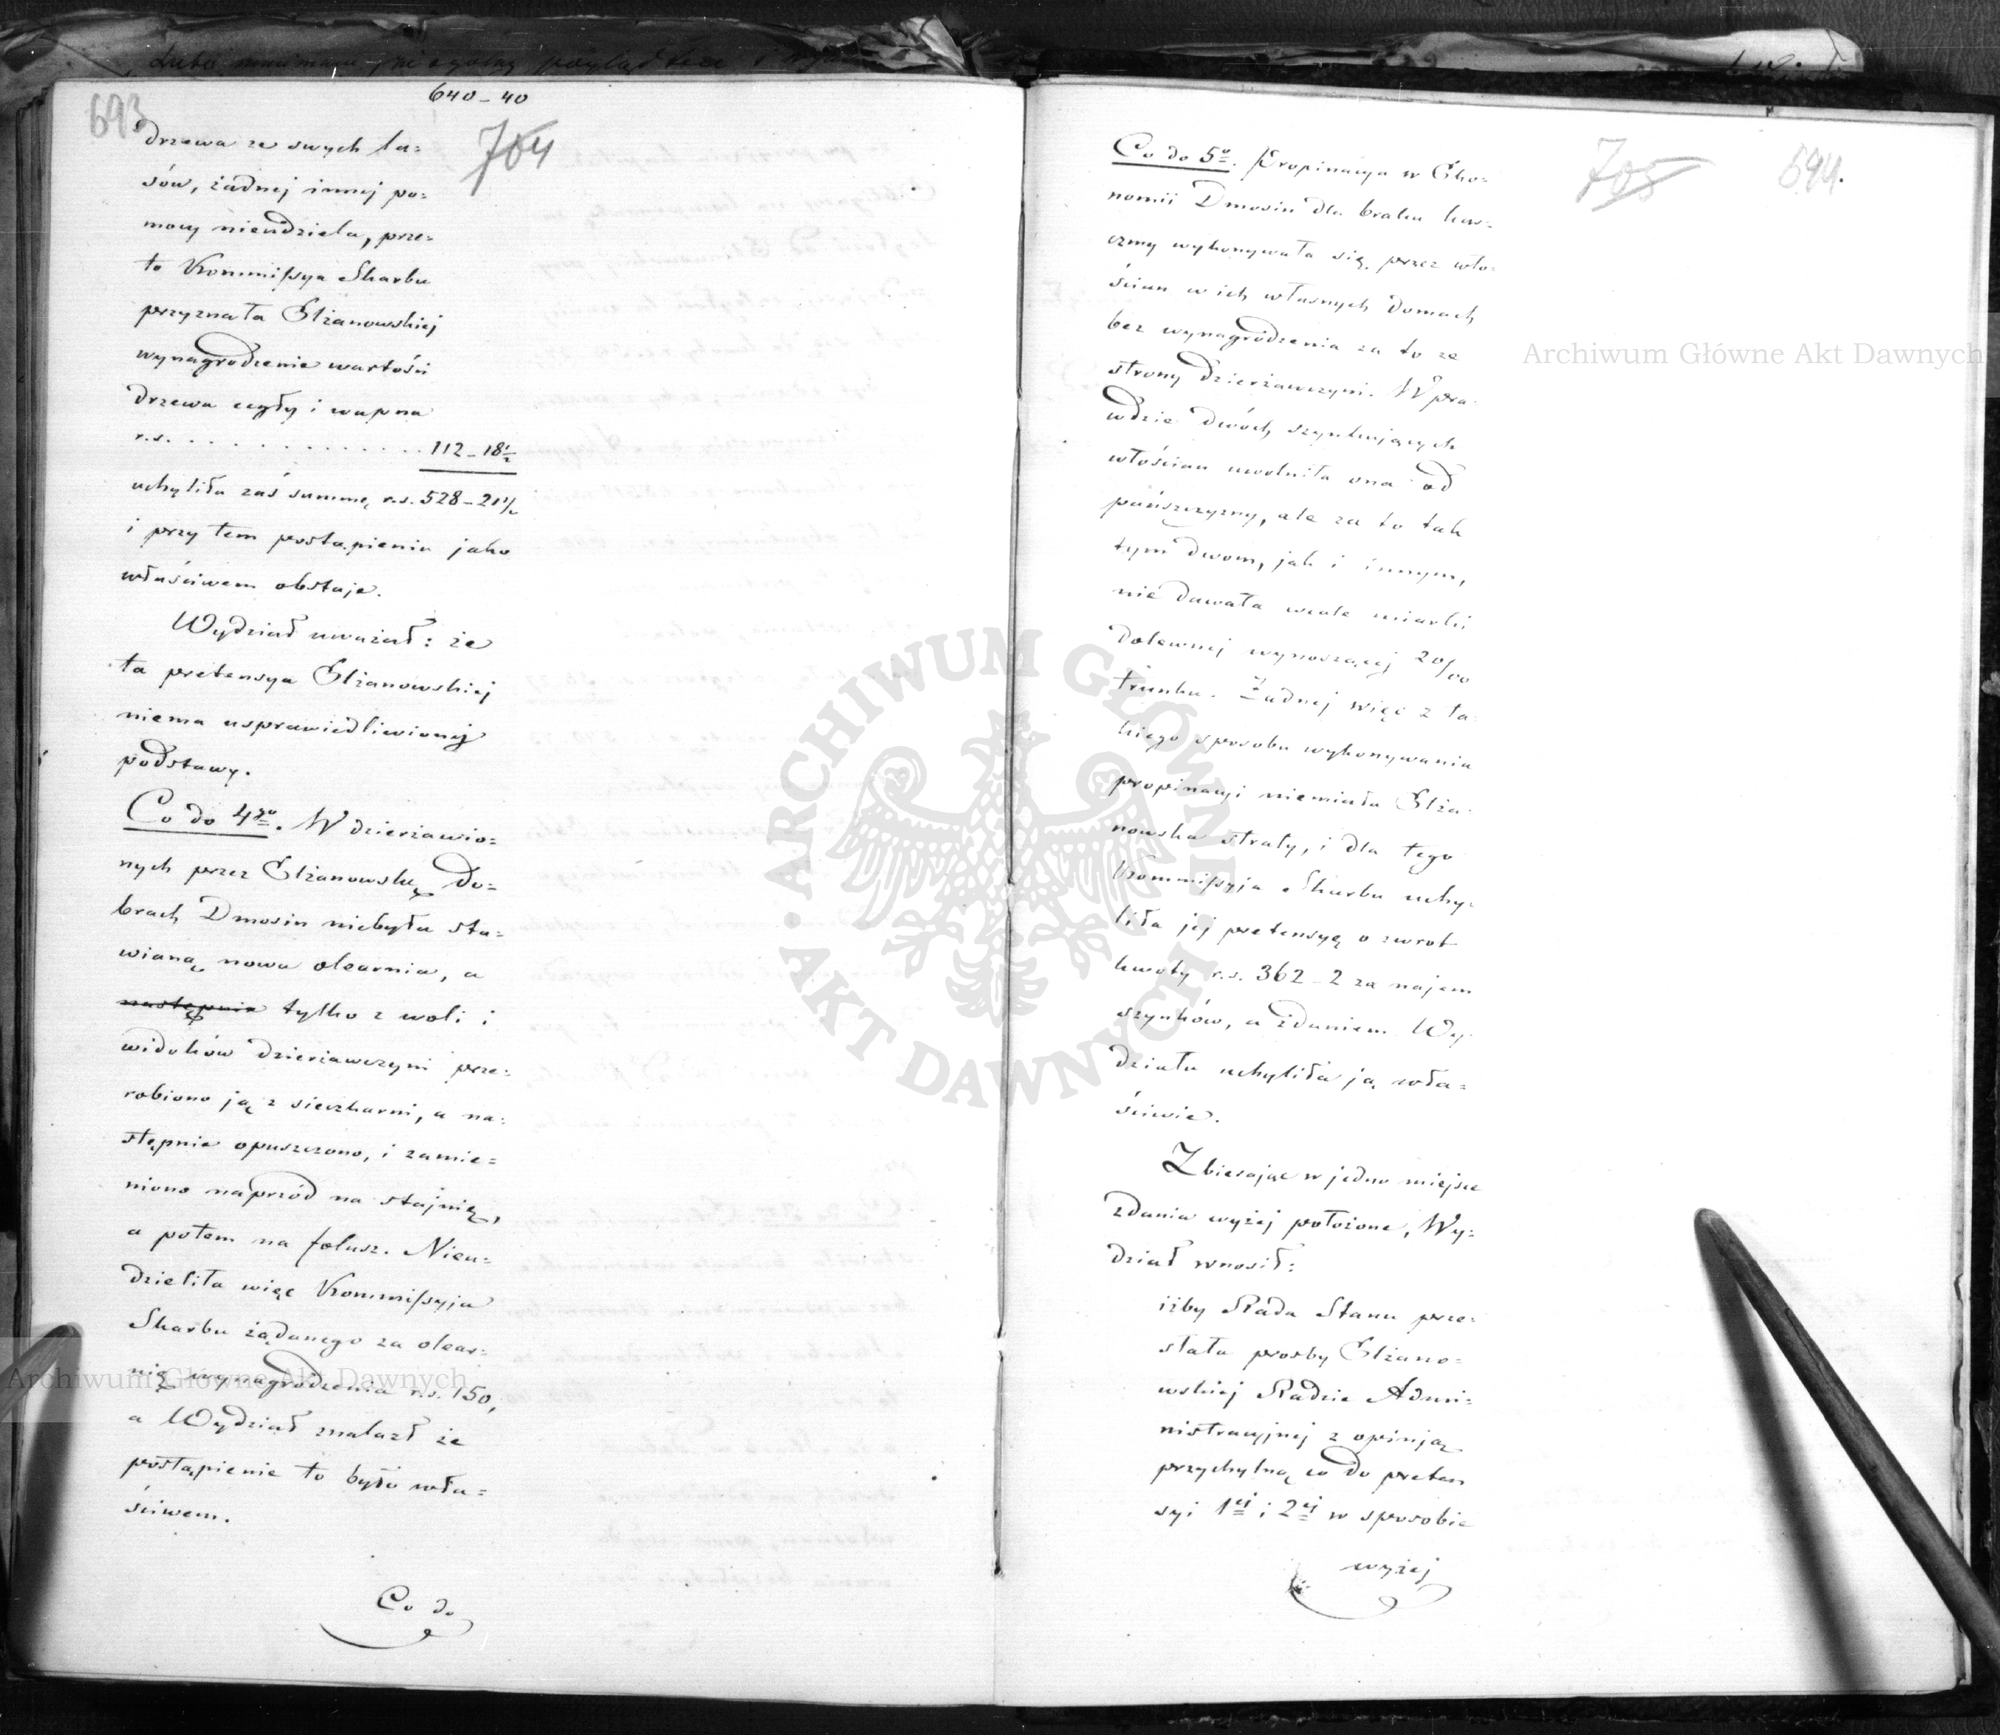 693
640-40
704
drzewa ze swych la=
sów, żadnej innej po=
mocy nieudziela, prze=
to Kommissya Skarbu
przyznała Elżanowskiej
wynagrodzenie wartości
drzewa cegły i wapna
r.s. . . . . . . . . . . . 112-18½
uchyliła zaś summę r.s. 528-21½
i przy tem postąpieniu jako
właściwem obstaje.
Wydział uważał: że
ta pretensya Elżanowskiej
niema usprawiedliwionej
podstawy.
Co do 4go. W dzierżawio=
nych przez Elżanowską do=
brach Dmosin niebyła sta=
wianą nowa olearnia, a
następnie tylko z woli i
widoków dzierżawczyni prze=
robiono ją z sieczkarni, a na=
stępnie opuszczono, i zamie=
niono naprzód na stajnię,
a potem na folusz. Nieu=
dzieliła więc Kommissyja
Skarbu żądanego za olear=
nię wynagrodzenia r.s. 150,
a Wydział znalazł że
postąpienie to było wła=
ściwem.
Co do
705
694.
Co do 5o. Propinacya w Eko=
nomii Dmosin dla braku kar=
czmy wykonywała się przez wło=
ścian w ich własnych domach
bez wynagrodzenia za to ze
strony dzierżawczyni. Wpra=
wdzie dwóch szynkujących
włościan uwolniła ona od
pańszczyzny, ale za to tak
tym dwom, jak i innym,
nie dawała wcale miarki
dolewnej wynoszącej 20/00
trunku. Żadnej więc z ta=
kiego sposobu wykonywania
propinacyi niemiała Elża=
nowska straty, i dla tego
Kommissyja Skarbu uchy=
liła jej pretensyę o zwrot
kwoty r.s. 362-2 za najem
szynków, a zdaniem Wy=
działu uchyliła ją wła=
ściwie.
Zbierając w jedno miejsce
zdania wyżej położone, Wy=
dział wnosił:
iżby Rada Stanu prze=
słała prośby Elżano=
wskiej Radzie Admi=
nistracyjnej z opinją
przychylną co do preten
syi 1ej i 2ej w sposobie
wyżej
Archiwum Główne Akt Dawnych
Archiwum Główne Akt Dawnych
ARCHIWUM GŁÓWNE AKT DAWNYCH